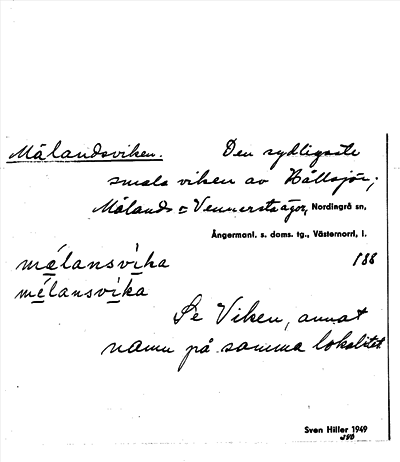 Målandsviken. Den sydligaste
smala viken av Vållsjön;
Målands = Vennerstaägor, Nordingrå sn,
Ångermanl. s. doms. tg., Västernorrl. l.
mélansvíka 188
mélansvíka
Se Viken, annat
namn på samma lokalitet.
Sven Hiller 1949